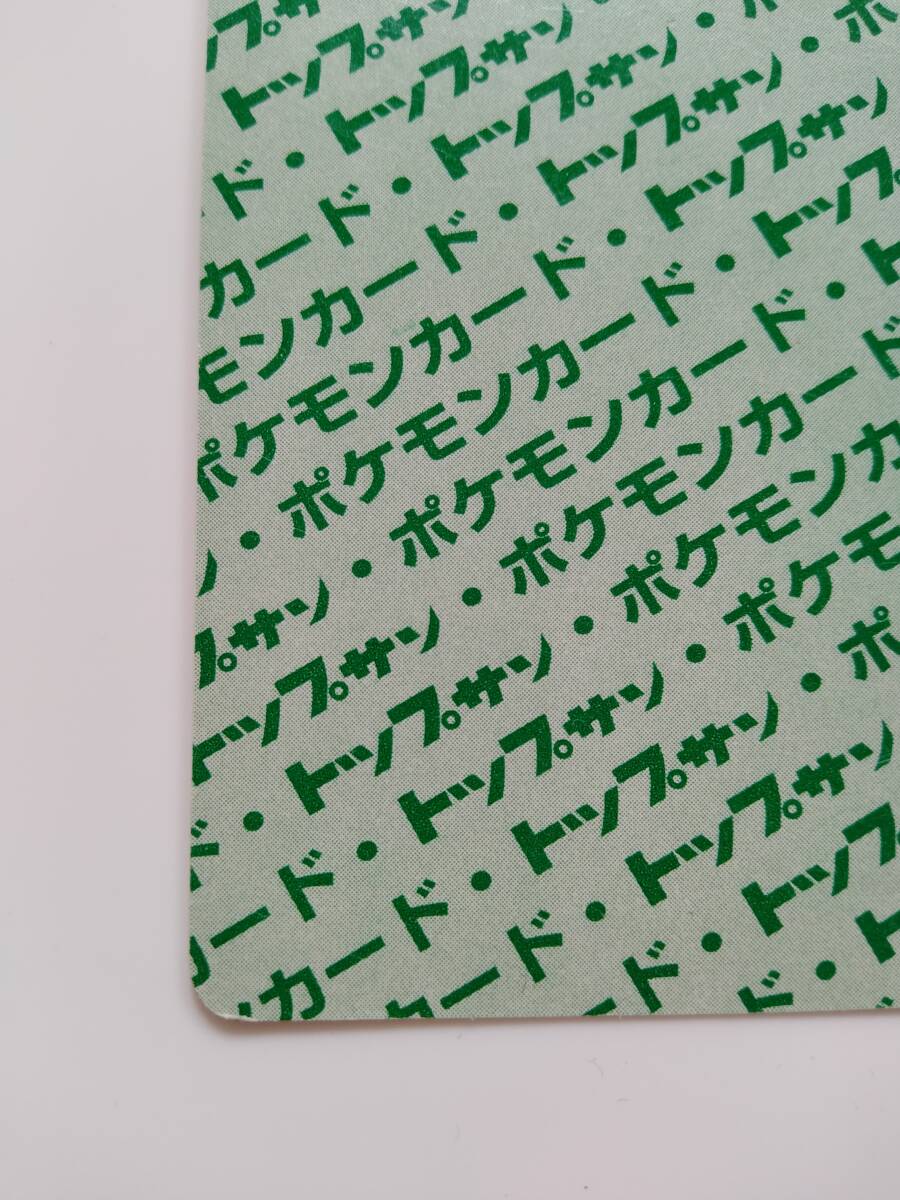 ップサ
トップサン
ド・トップサン・
カード・トップサン・
モンカード・トップサン・ポ
ポケモンカード・トップサン
ン・ポケモンカード・トップ
プサン・ポケモンカード・ト
トップサン・ポケモンカード
ド・トップサン・ポケモンカ
カード・トップサン・ポケモ
ンカード・トップサン・ポ
カード・トップサン
ド・トップ
ド・ト